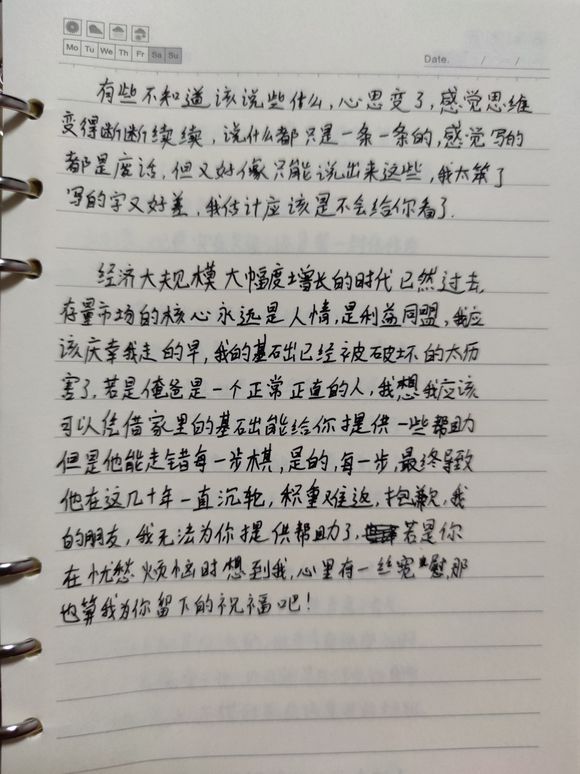 Mo Tu We Th Fr Sa Su
Date. / /
有些不知道该说些什么,心思变了,感觉思维
变得断断续续,说什么都只是一条一条的,感觉写的
都是废话,但又好像只能说出来这些,我太笨了
写的字又好差,我估计应该是不会给你看了.
经济大规模大幅度增长的时代已然过去,
存量市场的核心永远是人情,是利益同盟,我应
该庆幸我走的早,我的基础已经被破坏的太厉
害了,若是俺爸是一个正常正直的人,我想我应该
可以凭借家里的基础能给你提供一些帮助
但是他能走错每一步棋,是的,每一步,最终导致
他在这几十年一直沉轮,积重难返,抱歉,我
的朋友,我无法为你提供帮助了,若是你
在忧愁烦恼时想到我,心里有一丝宽慰,那
也算我为你留下的祝福吧!